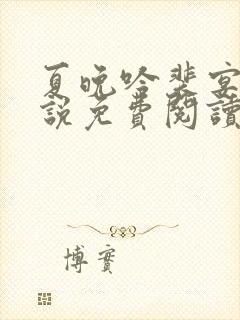 夏晚吟裴宴
說免費閱讀
博實